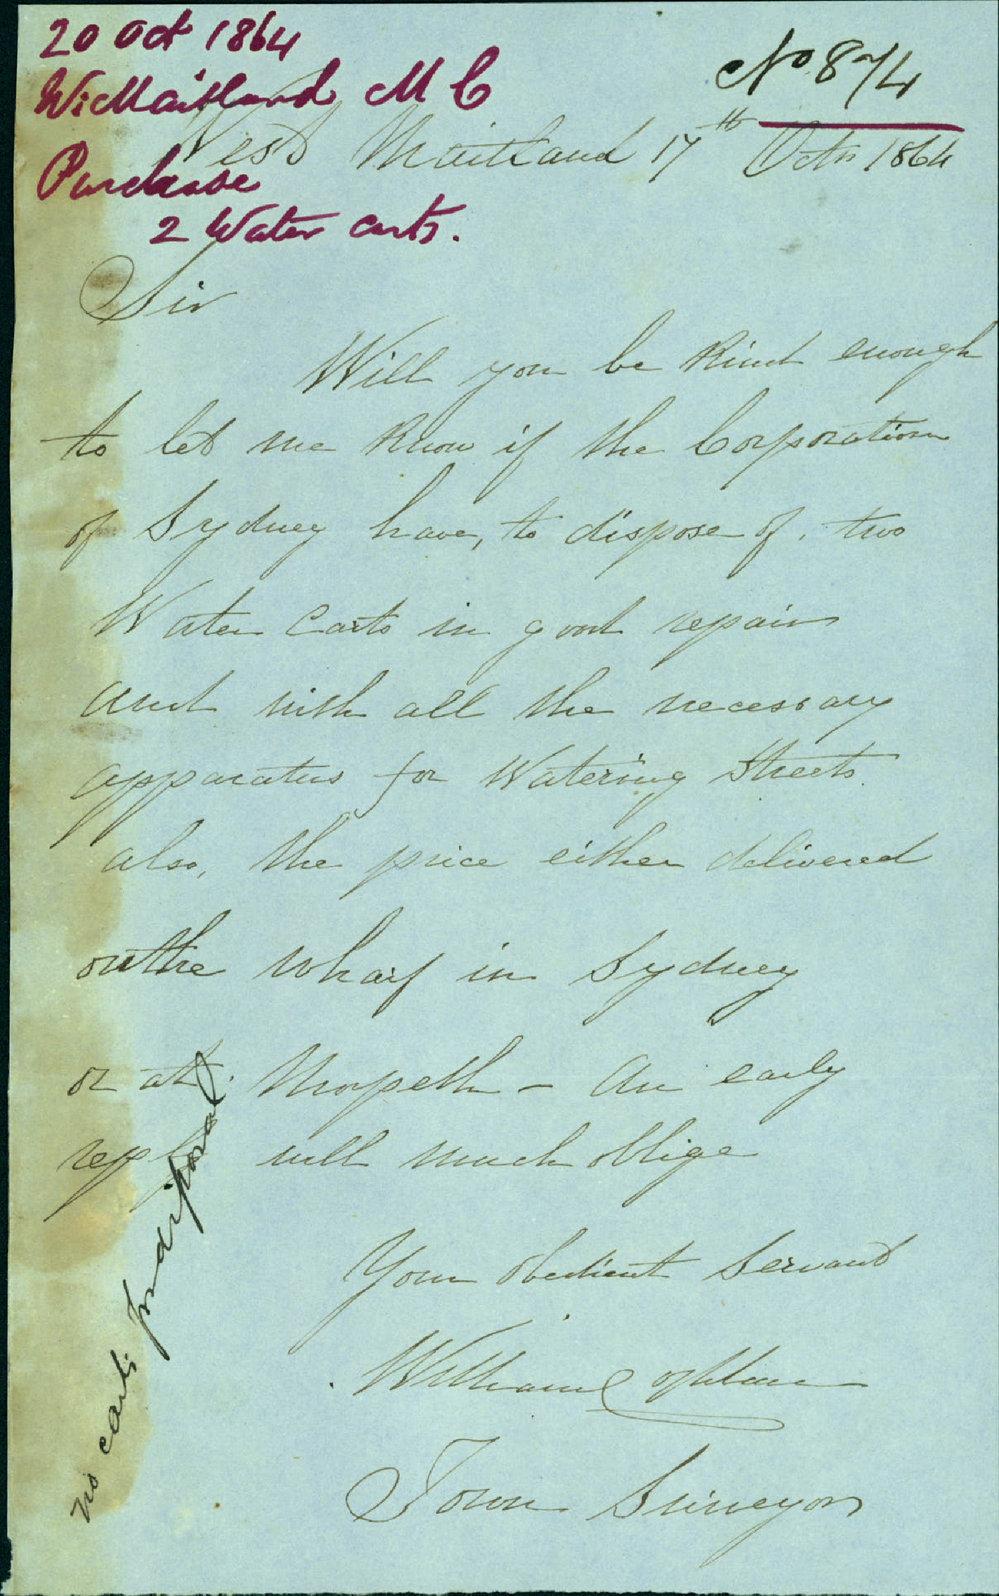 20 Oct 1864
No 874
W. Maitland M C
West Maitland 17th Octr 1864
Purchase
2 Water carts.
Sir
Will you be kind enough
to let me know if the Corporation
of Sydney have, to dispose of, two
Water Carts in good repair
and with all the necessary
apparatus for Watering Streets
also, the price either delivered
on the wharf in Sydney
or at Morpeth – An early
reply will much oblige
Your obedient Servant
William
Town Surveyor
no carts for disposal